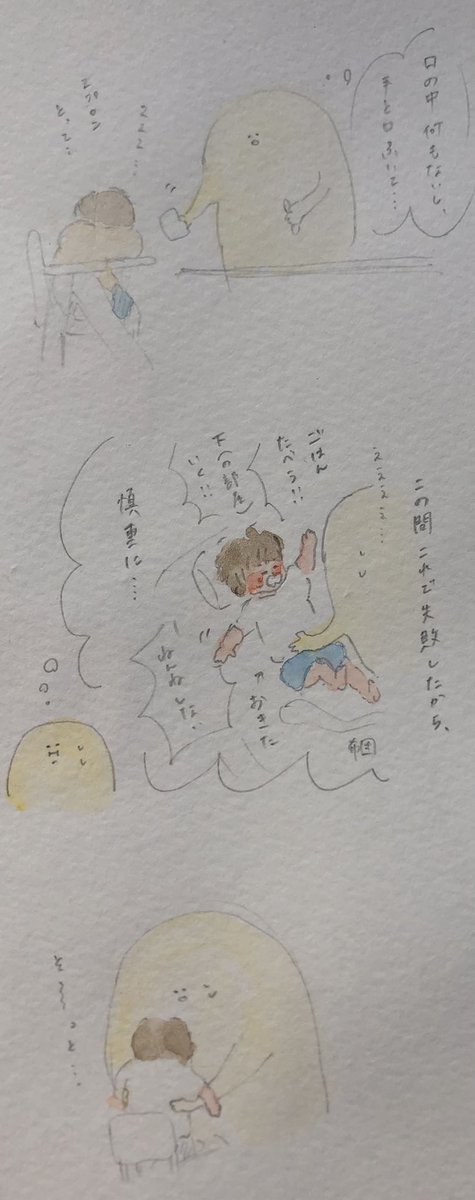 口の中 何もないし、
手と口ふいて……
エプロン
とって…
この間 これで失敗したから、
ええええ…
ごはん
たべう!!
下(の部屋)
いく!!
布団
おきた
ねんねしない!
慎重に……
そろ〜っと…